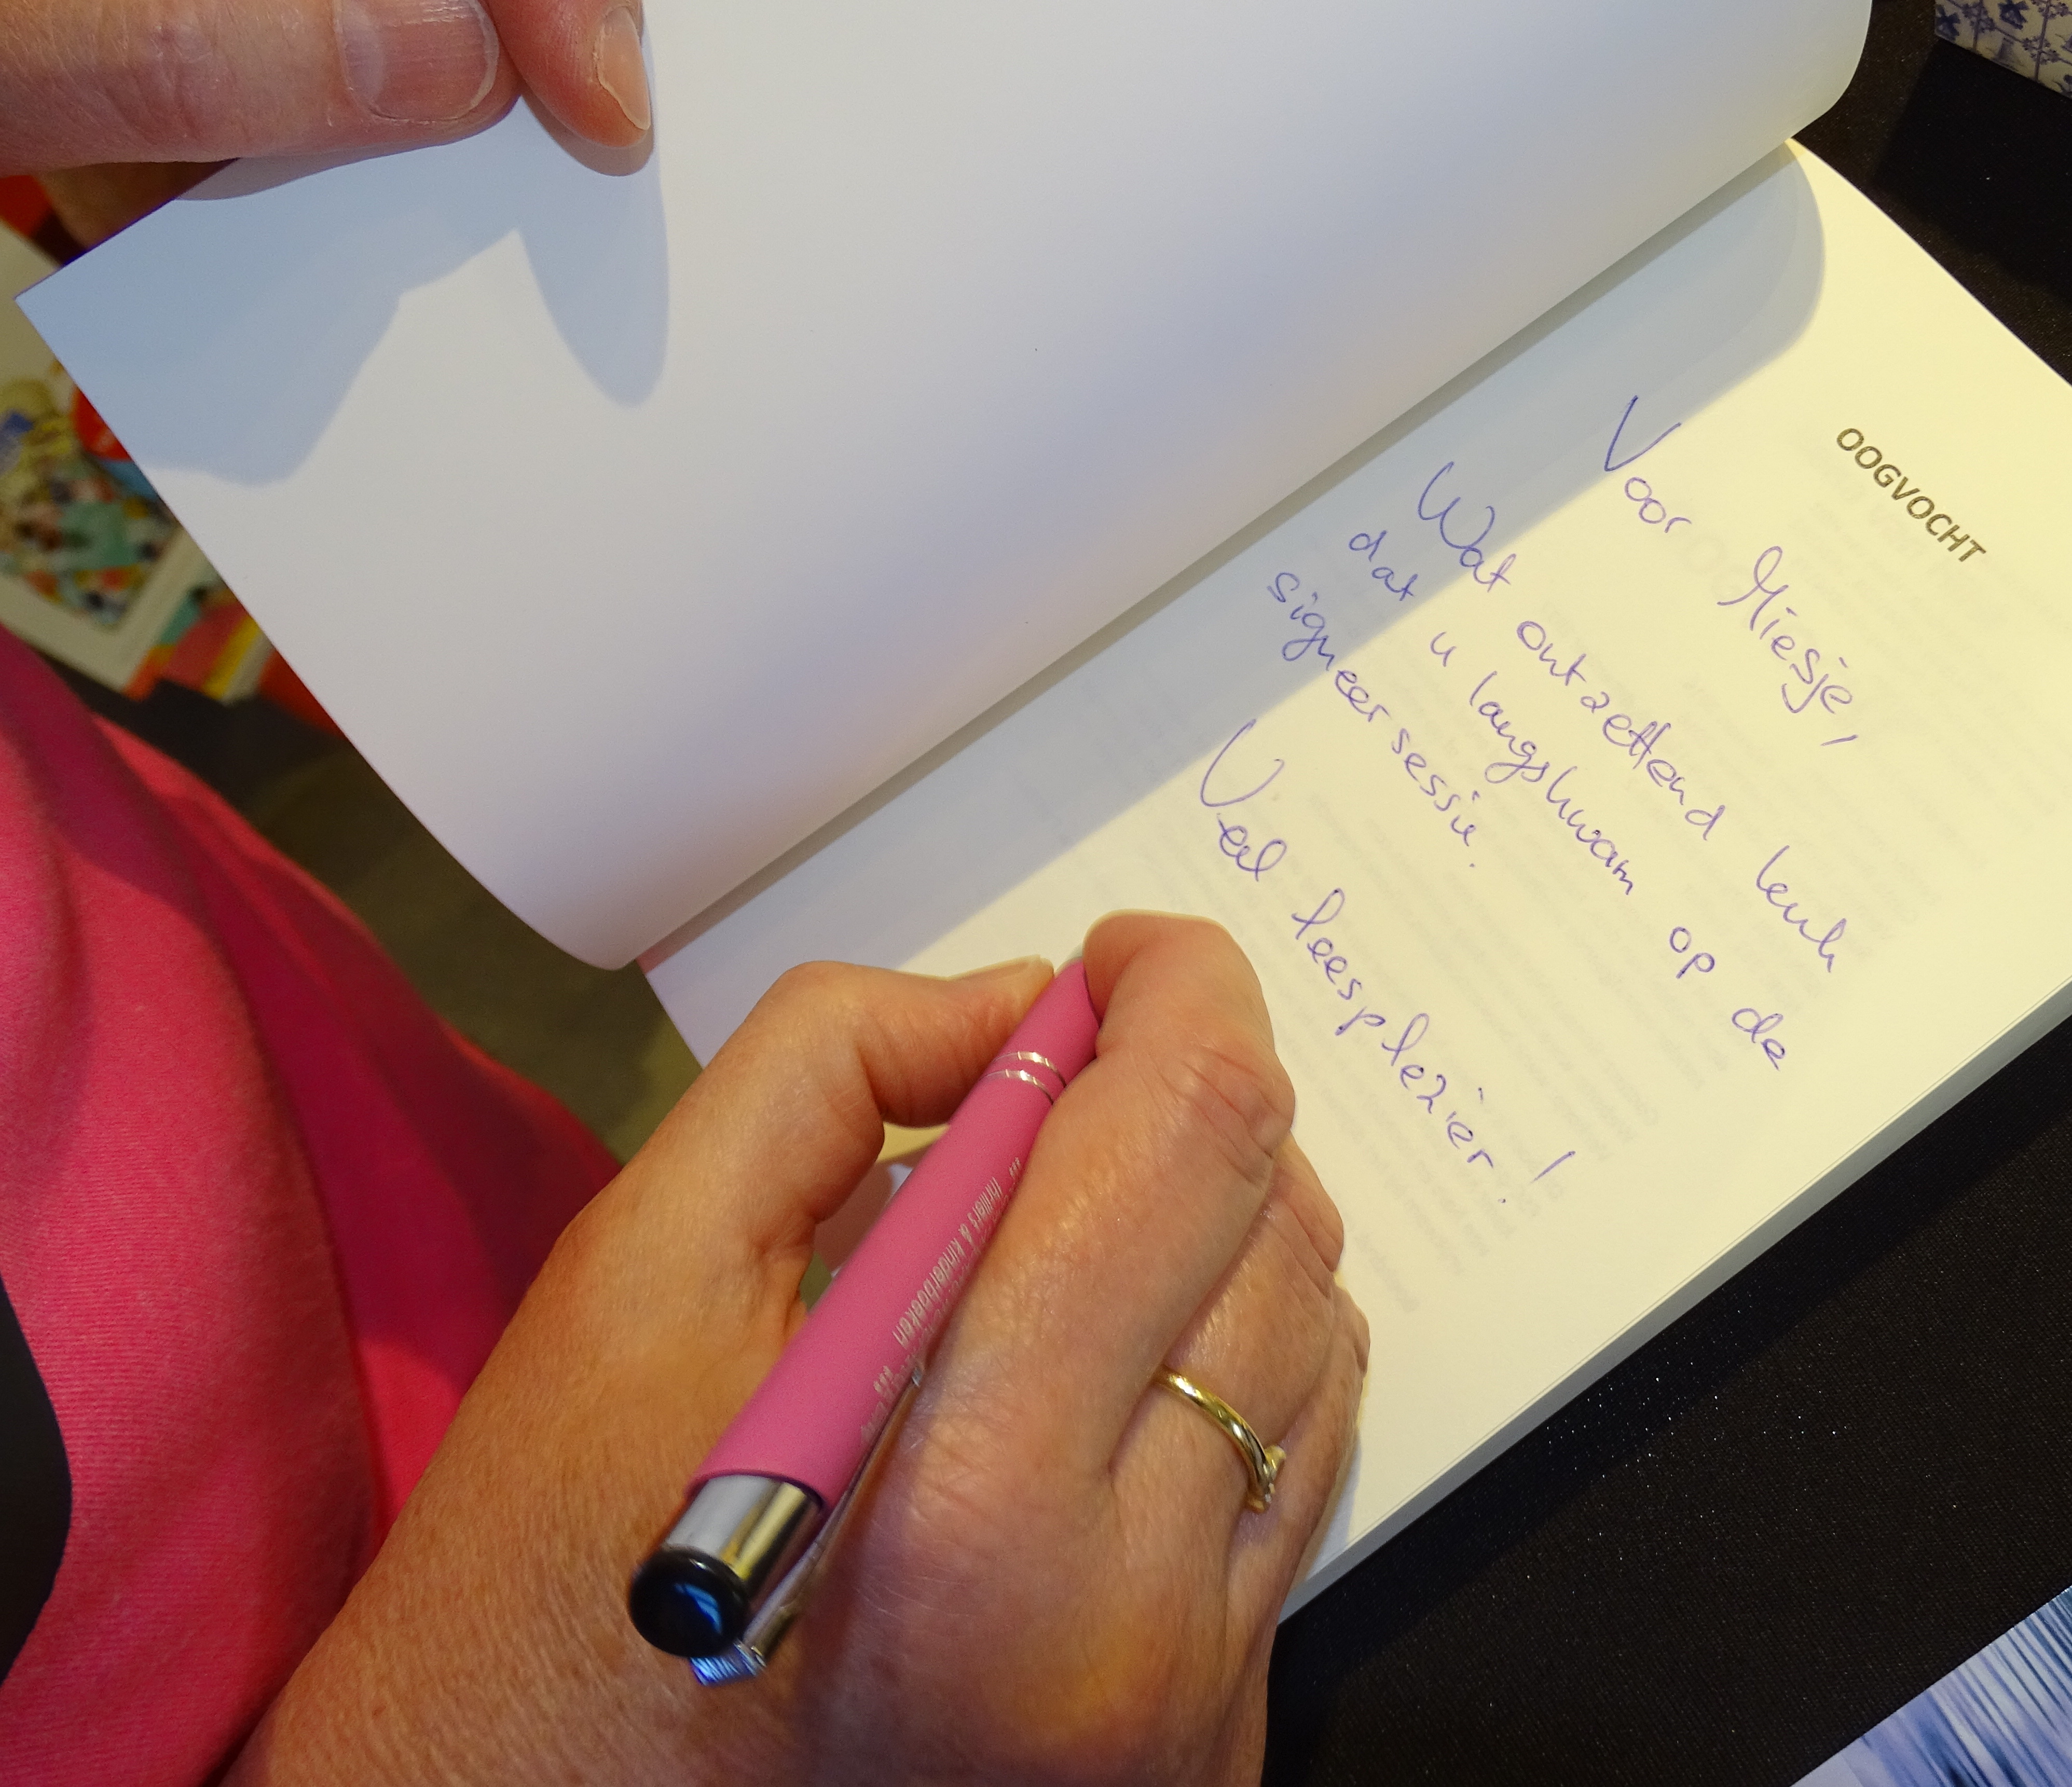 OOGVOCHT
Voor Miesje,
Wat ontzettend leuk
dat u langskwam op de
signeersessie.
Veel leesplezier!
thrillers & kinderboeken